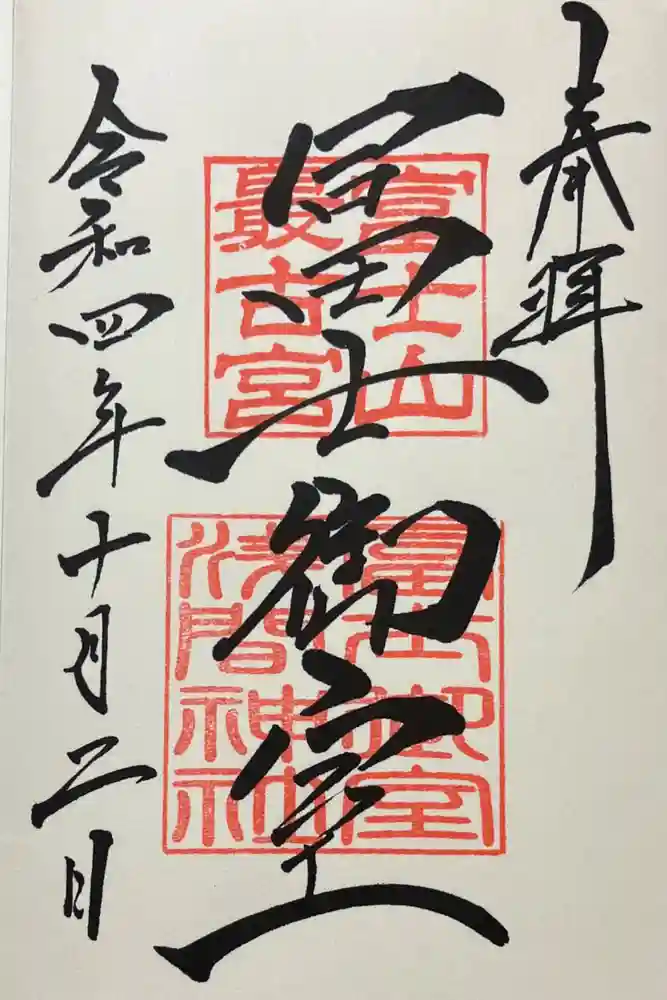 奉拝
冨士御室
富士山
最古宮
冨士御室
浅間神社
令和四年十月二日